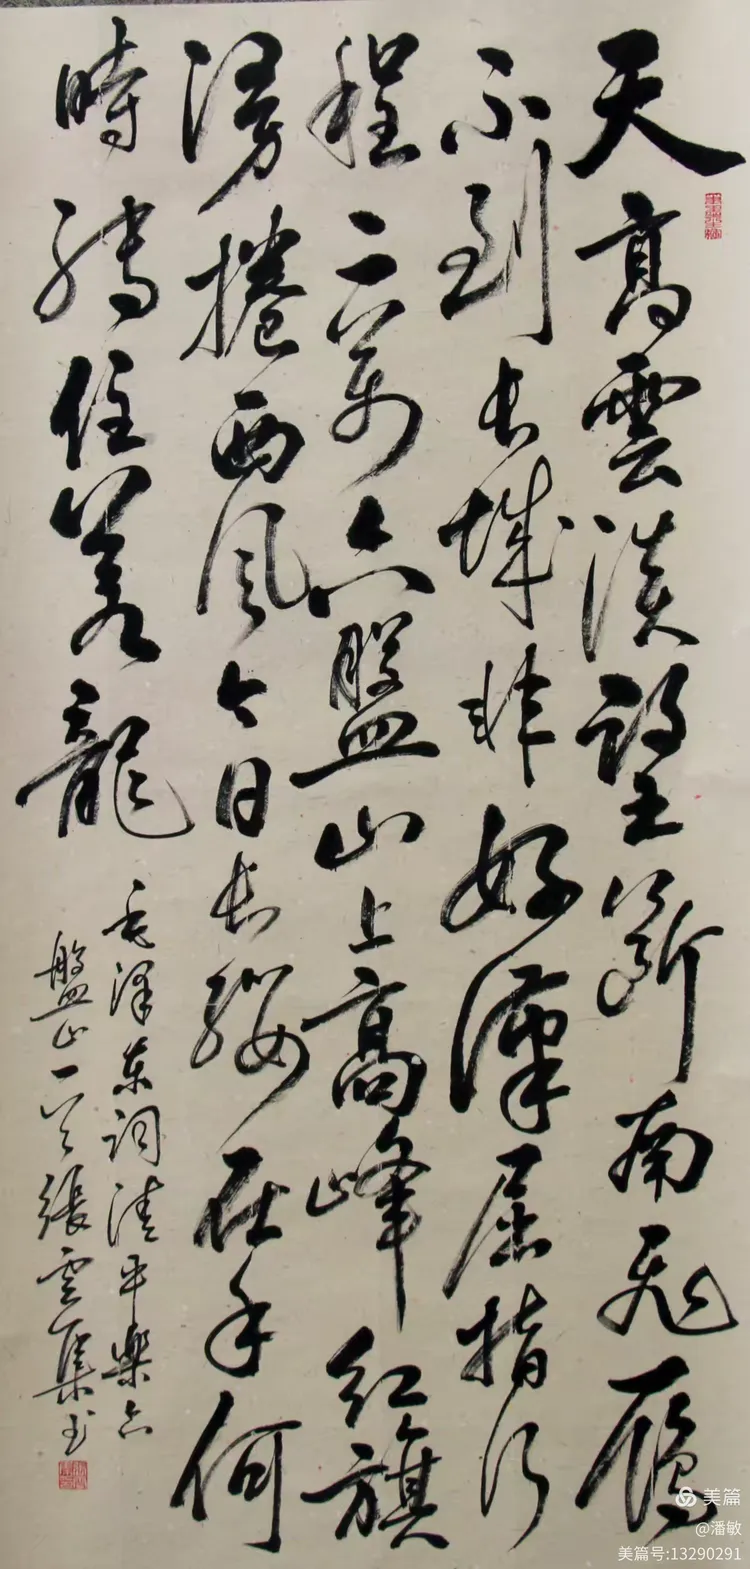 天高雲淡望斷南飛雁
不到長城非好漢屈指行
程二萬六盤山上高峰紅旗
漫捲西風今日長纓在手何
時縛住蒼龍
毛澤東詞清平樂六
盤山一首張雲集书
美篇
@潘敏
美篇号:13290291